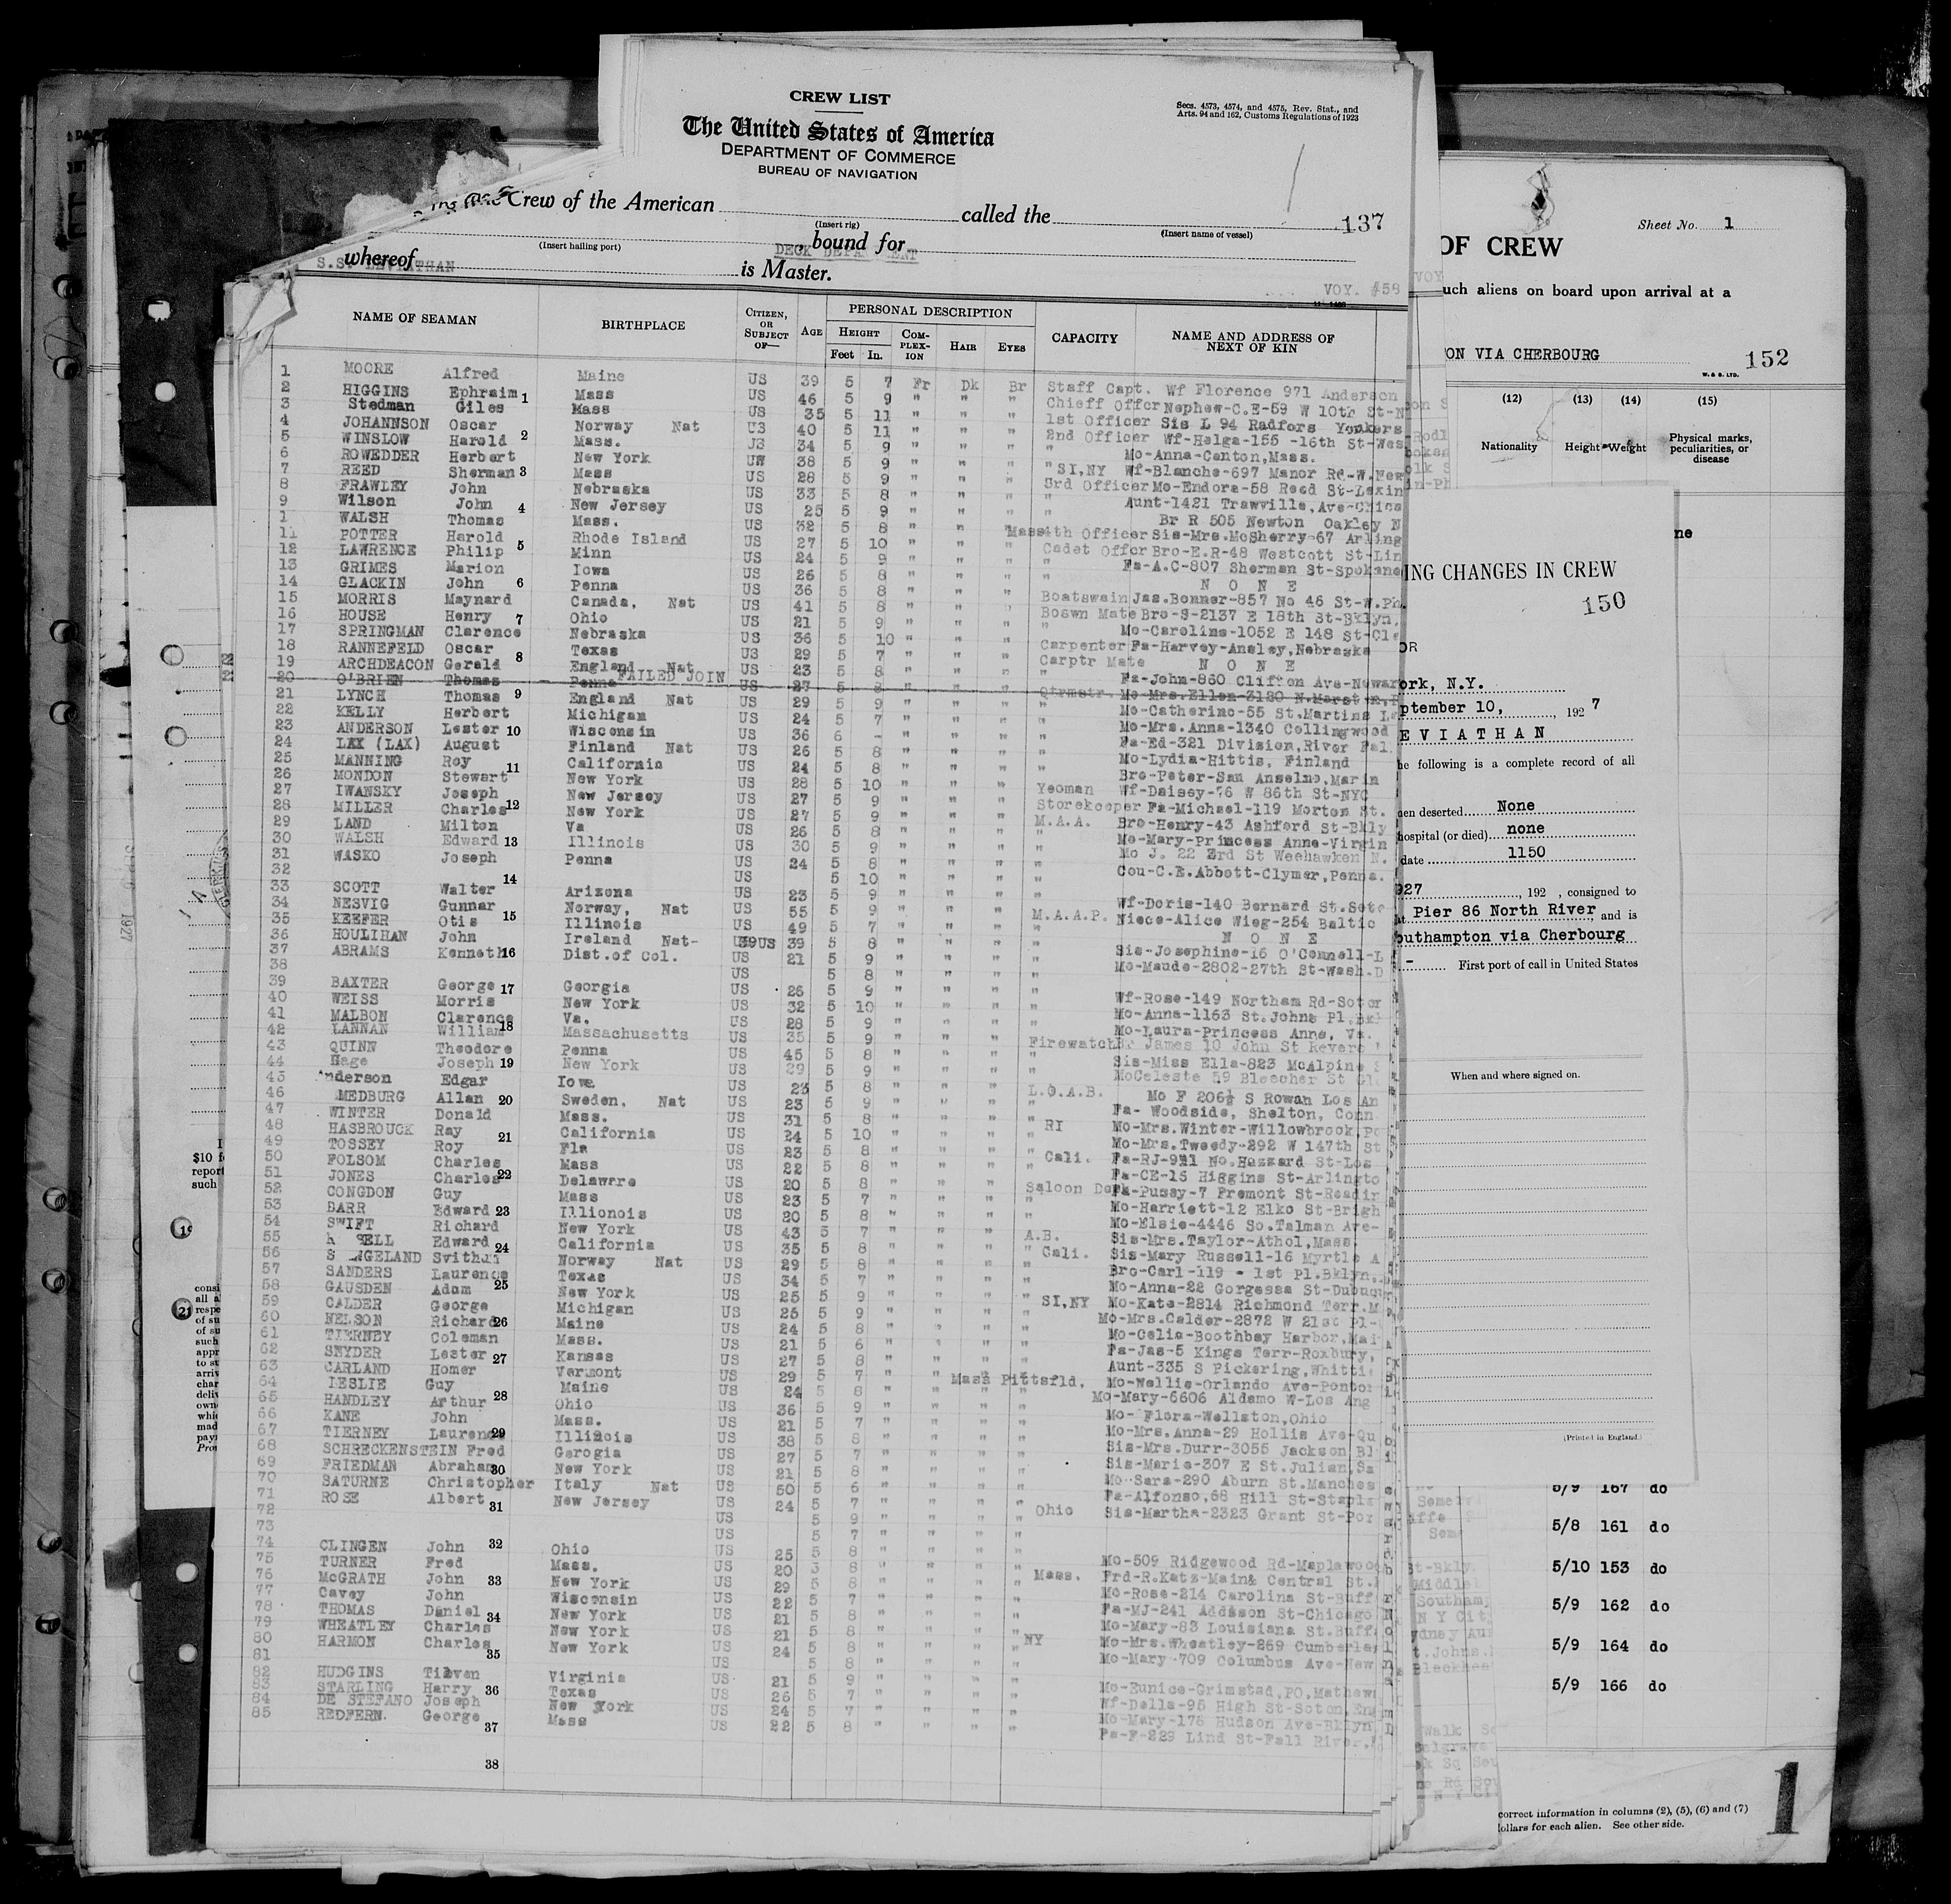 CREW LIST
Secs. 4573, 4574, and 4575, Rev. Stat., and
Arts. 94 and 162, Customs Regulations of 1923
The United States of America
DEPARTMENT OF COMMERCE
BUREAU OF NAVIGATION
Crew of the American called the 137
(Insert rig) (Insert name of vessel)
(Insert hailing port) , bound for
DECK DEPARTMENT
whereof is Master.
S.S. LEVIATHAN
VOY. #58
NAME OF SEAMAN BIRTHPLACE CITIZEN, OR SUBJECT OF— AGE PERSONAL DESCRIPTION CAPACITY NAME AND ADDRESS OF NEXT OF KIN
HEIGHT COM-PLEX-ION HAIR EYES
Feet In.
1 MOORE Alfred Maine US 39 5 7 Fr Dk Br Staff Capt. Wf Florence 971 Anderson
2 HIGGINS Ephraim 1 Mass US 46 5 9 " " " Chieff Offcr Nephew-C.E-59 W 10th St-N
3 Stedman Giles Mass US 35 5 11 " " " 1st Officer Sis L 94 Radfors Yonkers
4 JOHANNSON Oscar Norway Nat US 40 5 11 " " " 2nd Officer Wf-Helga-155 -16th St-Wes
5 WINSLOW Harold 2 Mass. 34 5 9 " " " " Mo-Anna-Canton,Mass.
6 ROWEDDER Herbert New York 38 5 9 " " " " SI,NY Wf-Blanche-697 Manor Rd-W.New
7 REED Sherman 3 Mass US 28 5 9 " " " 3rd Officer Mo-Endora-58 Reed St-Lexin
8 FRAWLEY John Nebraska US 33 5 8 " " " " Aunt-1421 Trawville, Ave-Chica
9 Wilson John 4 New Jersey US 25 5 9 " " " Br R 505 Newton Oakley N
1 WALSH Thomas Mass. US 32 5 8 " " " Mass 4th Officer Sis-Mrs.McSherry-67 Arling
11 POTTER Harold Rhode Island US 27 5 10 " " " Cadet Offcr Bro-E.R-48 Westcott St-Lin
12 LAWRENCE Philip 5 Minn US 24 5 9 " " " " Fa-A.C-807 Sherman St-Spokane
13 GRIMES Marion Iowa US 26 5 8 " " " " N O N E
14 GLACKIN John 6 Penna US 36 5 8 " " " Boatswain Jas.Bonner-857 No 46 St-W.Ph.
15 MORRIS Maynard Canada, Nat US 41 5 8 " " " Boswn Mate Bro-S-2137 E 18th St-Bklyn,
16 HOUSE Henry 7 Ohio US 21 5 9 " " " " Mo-Caroline-1052 E 148 St-Cle
17 SPRINGMAN Clarence Nebraska US 36 5 10 " " " Carpenter Fa-Harvey-Ansley,Nebraska
18 RANNEFELD Oscar 8 Texas US 29 5 7 " " " Carptr Mate N O N E
19 ARCHDEACON Gerald England Nat US 23 5 8 " " " " Fa-John-860 Clifton Ave-Newark
20 O'BRIEN Thomas Penna FAILED JOIN US 27 5 8 " " " Qtrmstr. Mo-Mrs.Ellen-3180 N.Marston,
21 LYNCH Thomas 9 England Nat US 29 5 9 " " " " Mo-Catherine-55 St.Martins
22 KELLY Herbert Michigan US 24 5 7 " " " " Mo-Mrs.Anna-1340 Collingwood
23 ANDERSON Lester 10 Wisconsin US 36 6 - " " " " Fa-Ed-321 Division,River Fal.
24 LAX (LAX) August Finland Nat US 26 5 8 " " " " Mo-Lydia-Hittis, Finland
25 MANNING Roy 11 California US 24 5 8 " " " " Bro-Peter-San Anselmo,Marin
26 MONDON Stewart New York US 28 5 10 " " " Yeoman Wf-Daisey-76 W 86th St-NYC
27 IWANSKY Joseph New Jersey US 27 5 9 " " " Storekeeper Fa-Michael-119 Morton St.
28 MILLER Charles 12 New York US 27 5 9 " " " M.A.A. Bro-Henry-43 Ashford St-Bkly
29 LAND Milton Va US 26 5 8 " " " " Mo-Mary-Princess Anne-Virgin
30 WALSH Edward 13 Illinois US 30 5 9 " " " " Mo J. 22 3rd St Weehawken N.
31 WASKO Joseph Penna US 24 5 8 " " " " Cou-C.E.Abbott-Clymer,Penna.
32 14 US 5 10 " " "
33 SCOTT Walter Arizona US 23 5 9 " " " " Wf-Doris-140 Bernard St.Soto
34 NESVIG Gunnar Norway, Nat US 55 5 9 " " " M.A.A.P. Niece-Alice Wieg-254 Baltic
35 KEEFER Otis 15 Illinois US 49 5 7 " " " " N O N E
36 HOULIHAN John Ireland Nat- 39US 39 5 8 " " " " Sis-Josephine-16 O'Connell-L
37 ABRAMS Kenneth 16 Dist.of Col. US 21 5 9 " " " " Mo-Maude-2802-27th St-Wash.D
38 US 5 8 " " "
39 BAXTER George 17 Georgia US 26 5 9 " " " " Wf-Rose-149 Northam Rd-Soton
40 WEISS Morris New York US 32 5 10 " " " " Mo-Anna-1163 St.Johns Pl,Bkl
41 MALBON Clarence Va. US 28 5 9 " " " " Mo-Laura-Princess Anne, Va.
42 LANNAN William 18 Massachusetts US 35 5 9 " " " Firewatch Br James 10 John St Revere
43 QUINN Theodore Penna US 45 5 8 " " " " Sis-Miss Ella-823 McAlpine S
44 Hage Joseph 19 New York US 29 5 9 " " " " MoCeleste 59 Bleecher St
45 Anderson Edgar Iowa US 23 5 8 " " " L.O.A.B. Mo F 206½ S Rowan Los An
46 MEDBURG Allan 20 Sweden, Nat US 23 5 9 " " " " Fa- Woodside, Shelton, Conn
47 WINTER Donald Mass. US 31 5 8 " " " " RI Mo-Mrs.Winter-Willowbrook,
48 HASBROUCK Ray 21 California US 24 5 10 " " " " Mo-Mrs.Tweedy-292 W 147th St
49 TOSSEY Roy Fla US 23 5 8 " " " " Cali. Fa-RJ-921 No.Hazzard St-Los
50 FOLSOM Charles Mass US 22 5 8 " " " " Fa-CE-15 Higgins St-Arlingto
51 JONES Charles 22 Delaware US 20 5 8 " " " Saloon Deck Fa-Pussy-7 Fremont St-Readin
52 CONGDON Guy Mass US 23 5 7 " " " " Mo-Harriett-12 Elko St-Brigh
53 BARR Edward 23 Illionois US 20 5 8 " " " " Mo-Elsie-4446 So.Talman Ave-
54 SWIFT Richard New York US 43 5 7 " " " A.B. Sis-Mrs.Taylor-Athol,Mass.
55 SELL Edward 24 California US 35 5 8 " " " " Cali. Sis-Mary Russell-16 Myrtle A
56 GELAND Svithun Norway Nat US 29 5 8 " " " " Bro-Carl-119 - 1st Pl.Bklyn.
57 SANDERS Laurence Texas US 34 5 7 " " " " Mo-Anna-22 Gorgessa St-Dubuqu
58 GAUSDEN Adam 25 New York US 25 5 9 " " " " SI,NY Mo-Kate-2814 Richmond Terr.M
59 CALDER George Michigan US 26 5 9 " " " Mo-Mrs.Calder-2872 W 21st Pl-
60 NELSON Richard 26 Maine US 24 5 8 " " " " Mo-Celia-Boothbay Harbor,Mai
61 TIERNEY Coleman Mass. US 21 5 6 " " " " Fa-Jas-5 Kings Terr-Roxbury,
62 SNYDER Lester 27 Kansas US 27 5 8 " " " " Aunt-335 S Pickering,Whitti
63 CARLAND Homer Vermont US 29 5 7 " " " Mass Pittsfld. Mo-Nellie-Orlando Ave-Pontoo
64 LESLIE Guy Maine US 24 5 8 " " " Mo-Mary-6606 Aldamo W-Los Ang
65 HANDLEY Arthur 28 Ohio US 36 5 9 " " " " Mo- Flora-Wellston,Ohio
66 KANE John Mass. US 21 5 7 " " " " Mo-Mrs.Anna-29 Hollis Ave-Qu
67 TIERNEY Laurence 29 Illinois US 38 5 8 " " " " Sis-Mrs.Durr-3055 Jackson Bl
68 SCHRECKENSTEIN Fred Gerogia US 27 5 7 " " " " Sis-Marie-307 E St.Julian,Sa
69 FRIEDMAN Abraham 30 New York US 21 5 8 " " " " Mo-Sara-290 Aburn St.Manches
70 SATURNE Christopher Italy Nat US 50 5 6 " " " " Fa-Alfonso,68 Hill St-Staple
71 ROSE Albert 31 New Jersey US 24 5 7 " " " Ohio Sis-Martha-2323 Grant St-Por
72 US 5 9 " " "
73 US 5 7 " " "
74 CLINGEN John 32 Ohio US 25 5 8 " " " Mo-509 Ridgewood Rd-Maplewood
75 TURNER Fred Mass. US 20 5 8 " " " Mass. Frd-R.Katz-Main& Central St.
76 McGRATH John 33 New York US 29 5 8 " " " Mo-Rose-214 Carolina St-Buff
77 Cavey John Wisconsin US 22 5 7 " " " Fa-MJ-241 Addison St-Chicago
78 THOMAS Daniel 34 New York US 21 5 8 " " " Mo-Mary-83 Louisiana St.Buff
79 WHEATLEY Charles New York US 21 5 8 " " " NY Mo-Mrs.Wheatley-269 Cumberla
80 HARMON Charles 35 New York US 24 5 8 " " " Mo-Mary-709 Columbus Ave-New
81 US 5 8 " " "
82 HUDGINS Tilven Virginia US 21 5 9 " " " Mo-Eunice-Grimstad,PO,Mathew
83 STARLING Harry 36 Texas US 26 5 7 " " " Wf-Della-95 High St-Soton,Eng
84 DE STEFANO Joseph New York US 24 5 7 " " " Mo-Mary-176 Hudson Ave-Bklyn
85 REDFERN. George 37 Mass US 22 5 8 " " " Fa-F-229 Lind St-Fall River.
38
Sheet No. 1
OF CREW
uch aliens on board upon arrival at a
ON VIA CHERBOURG 152
W. & S. LTD.
(12) (13) (14) (15)
Nationality Height Weight Physical marks, peculiarities, or disease
ne
ING CHANGES IN CREW
150
OR
ork, N.Y.
ptember 10, , 192 7
EVIATHAN
he following is a complete record of all
en deserted None
hospital (or died) none
date 1150
927 , 192 , consigned to
at Pier 86 North River, and is
outhampton via Cherbourg
- First port of call in United States
When and where signed on.
(Printed in England.)
5/9 167 do
5/8 161 do
5/10 153 do
5/9 162 do
5/9 164 do
5/9 166 do
correct information in columns (2), (5), (6) and (7)
dollars for each alien. See other side.
1
$10 f
report
such
19
21
consi
all a
respe
of su
of su
such
appr
to su
arriv
char
deliv
own
whic
mad
payn
Pro
1927